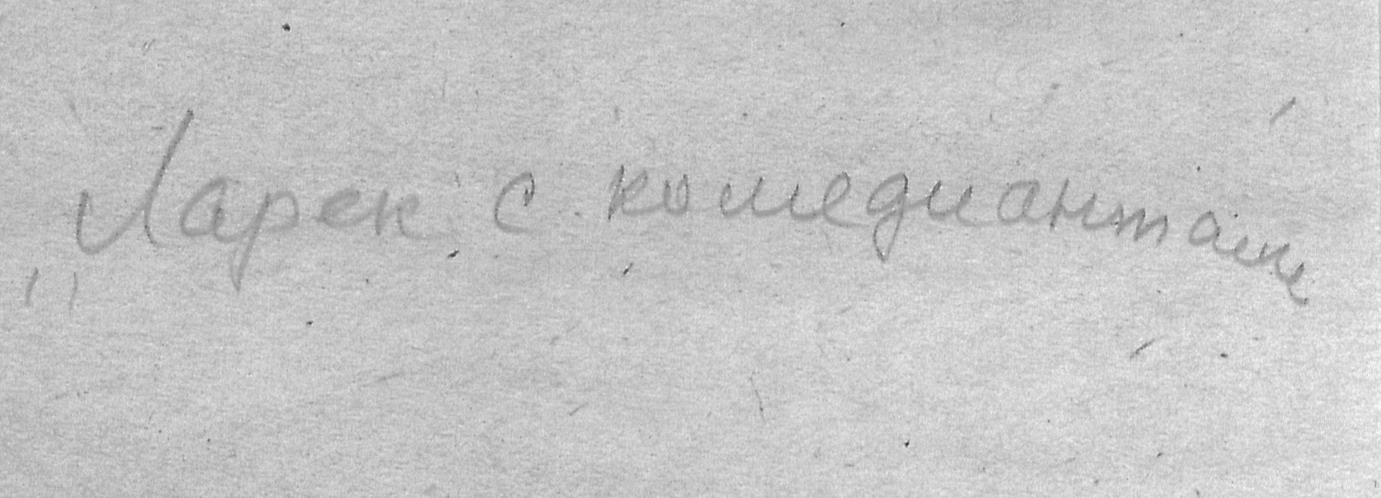 „Ларек с комедиантами